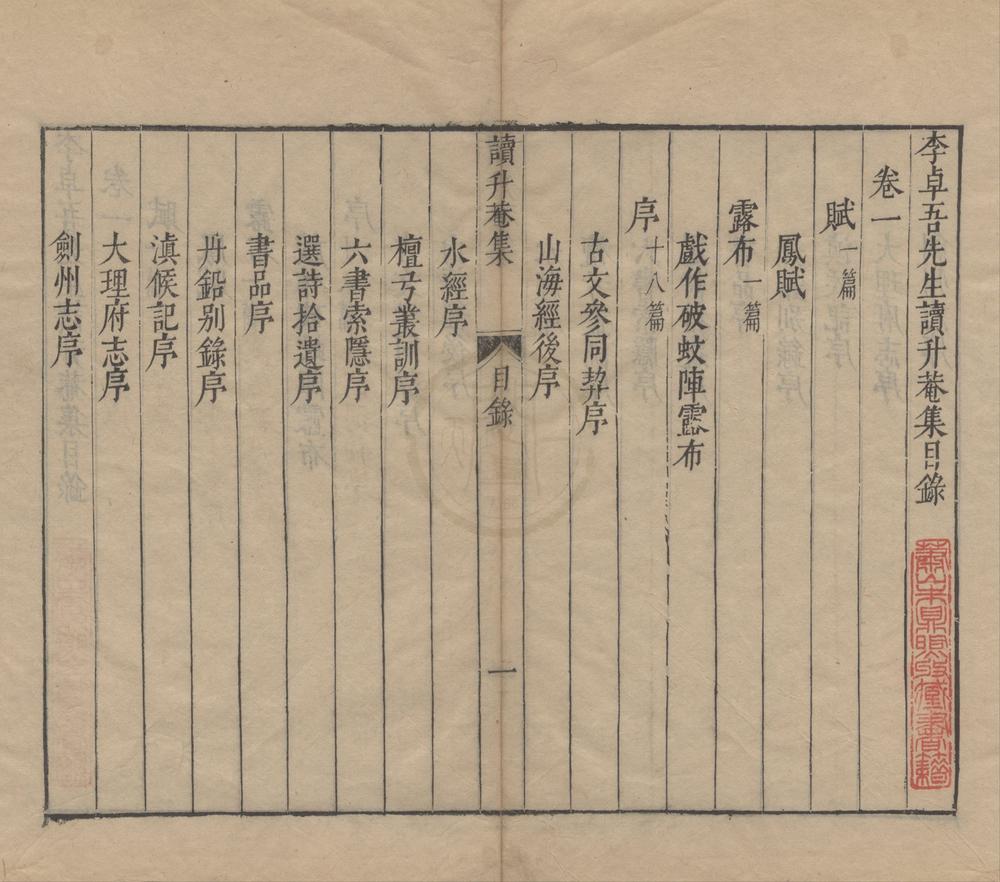 李卓吾先生讀升菴集目錄
卷一
賦一篇
鳳賦
露布一篇
戲作破蚊陣露布
序十八篇
古文參同契序
山海經後序
讀升菴集 目錄 一
水經序
檀弓叢訓序
六書索隱序
選詩拾遺序
書品序
丹鉛別錄序
滇候記序
大理府志序
劍州志序